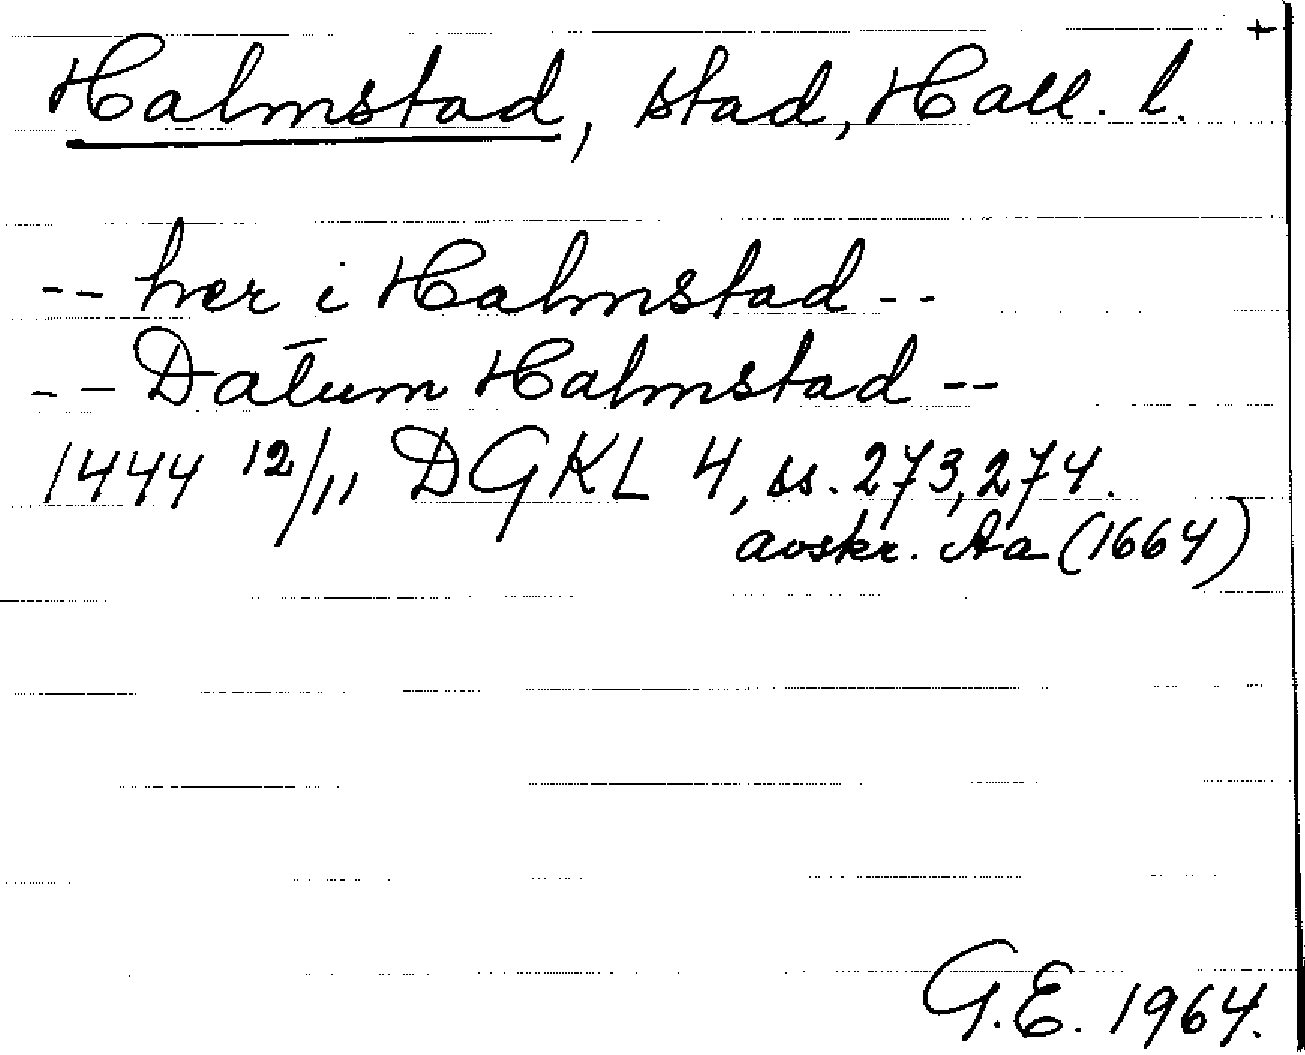 +
Halmstad, stad, Hall. l.
-- hær i Halmstad --
-- Datum Halmstad --
1444 12/11 DGKL 4, ss. 273, 274.
avskr. Aa (1664)
G.E. 1964.